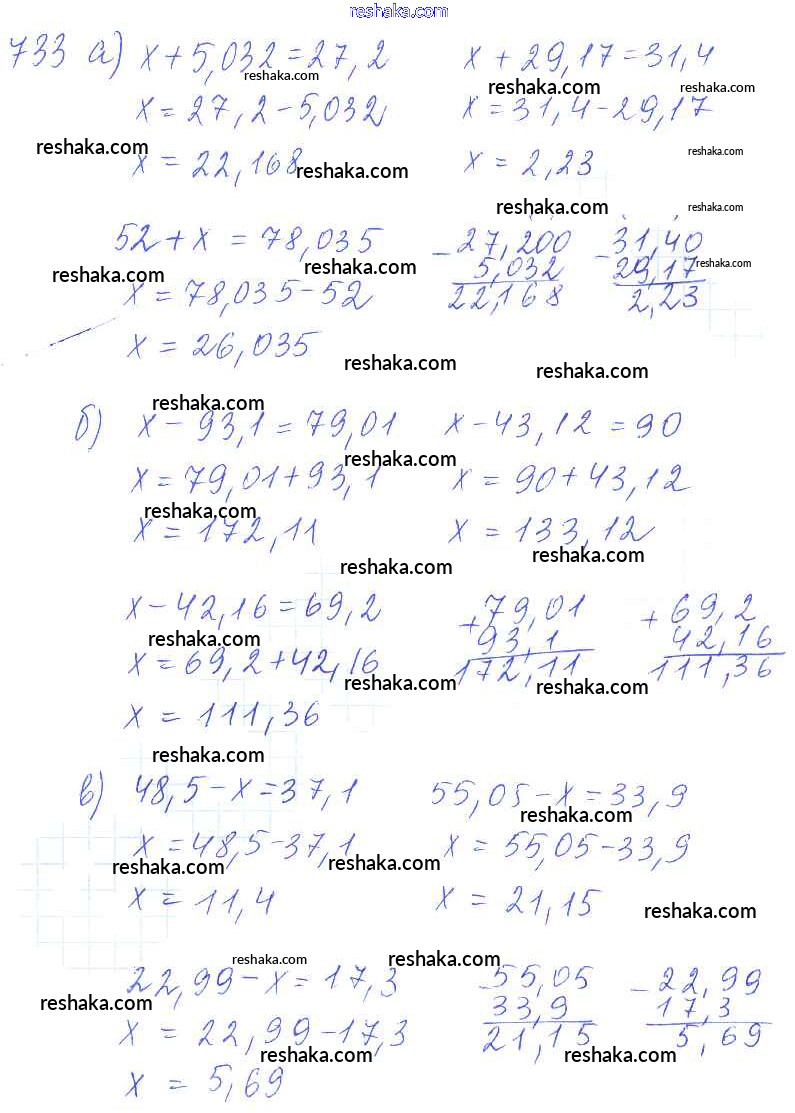 reshaka.com
733 а) x + 5,032 = 27,2    x + 29,17 = 31,4
reshaka.com reshaka.com reshaka.com
x = 27,2 - 5,032    x = 31,4 - 29,17
reshaka.com reshaka.com
x = 22,168    x = 2,23
reshaka.com
reshaka.com reshaka.com
52 + x = 78,035    - 27,200    - 31,40
reshaka.com reshaka.com 5,032    29,17 reshaka.com
x = 78,035 - 52    22,168    2,23
x = 26,035
reshaka.com reshaka.com
reshaka.com
б) x - 93,1 = 79,01    x - 43,12 = 90
reshaka.com
x = 79,01 + 93,1    x = 90 + 43,12
reshaka.com
x = 172,11    x = 133,12
reshaka.com
reshaka.com
x - 42,16 = 69,2    + 79,01    + 69,2
reshaka.com 93,1    42,16
x = 69,2 + 42,16    172,11    111,36
reshaka.com reshaka.com
x = 111,36
reshaka.com
в) 48,5 - x = 37,1    55,05 - x = 33,9
reshaka.com
x = 48,5 - 37,1    x = 55,05 - 33,9
reshaka.com reshaka.com
x = 11,4    x = 21,15
reshaka.com
reshaka.com reshaka.com
22,99 - x = 17,3    - 55,05    - 22,99
reshaka.com 33,9    17,3 reshaka.com
x = 22,99 - 17,3    21,15    5,69
reshaka.com reshaka.com
x = 5,69